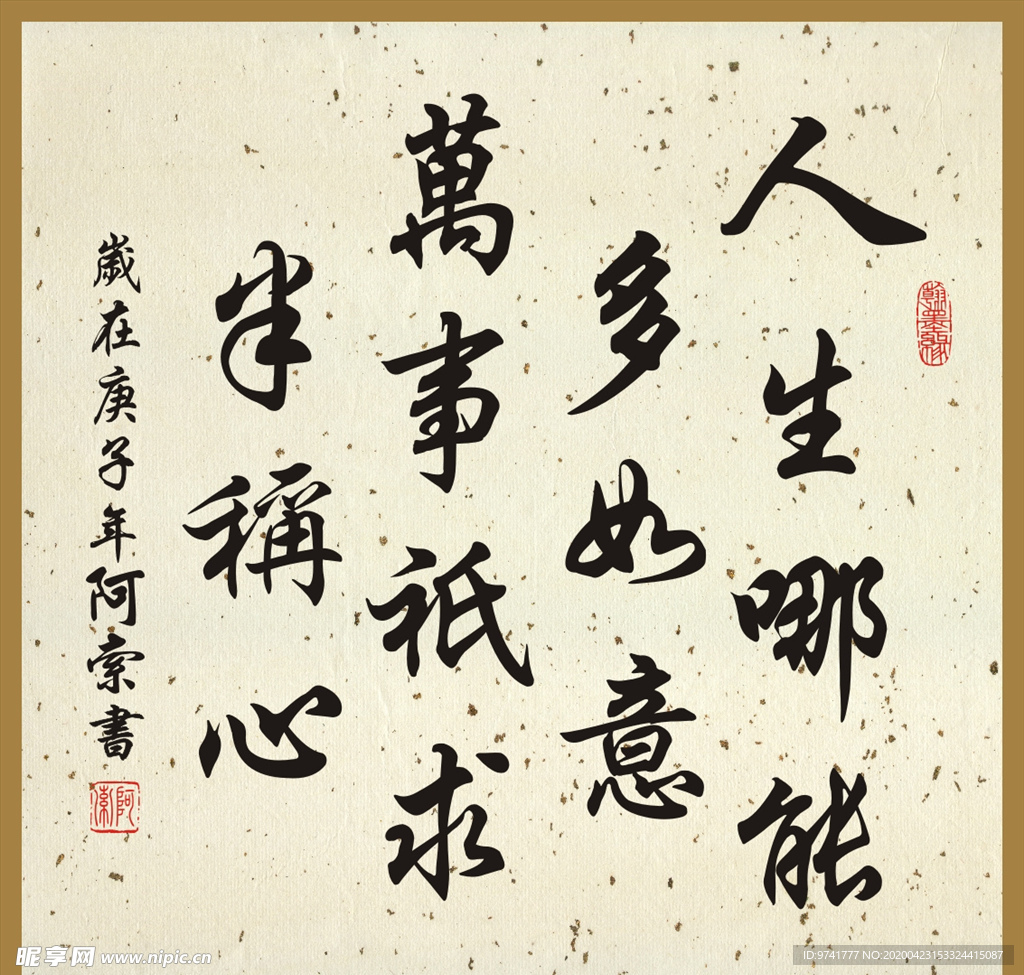 人生哪能
多如意
萬事祇求
半稱心
歲在庚子年阿索書
翰墨緣
阿索
昵享网 www.nipic.cn
ID:9741777 NO:20200423153324415087